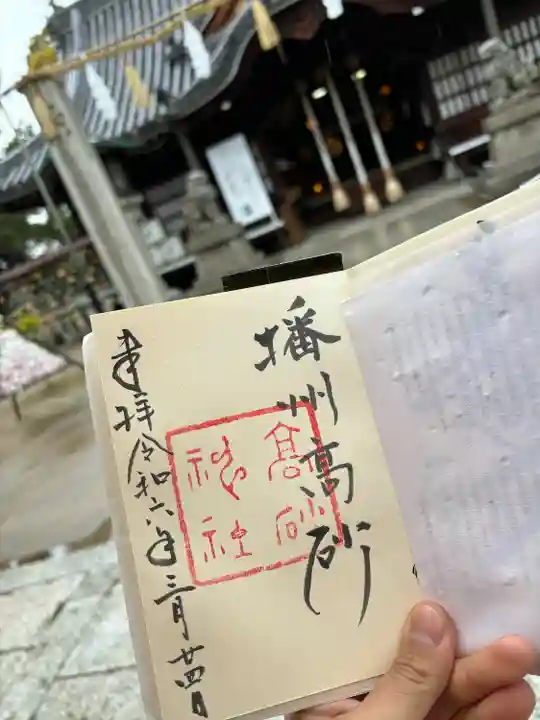 播州高砂
高砂
神社
奉拝令和六年三月廿四日